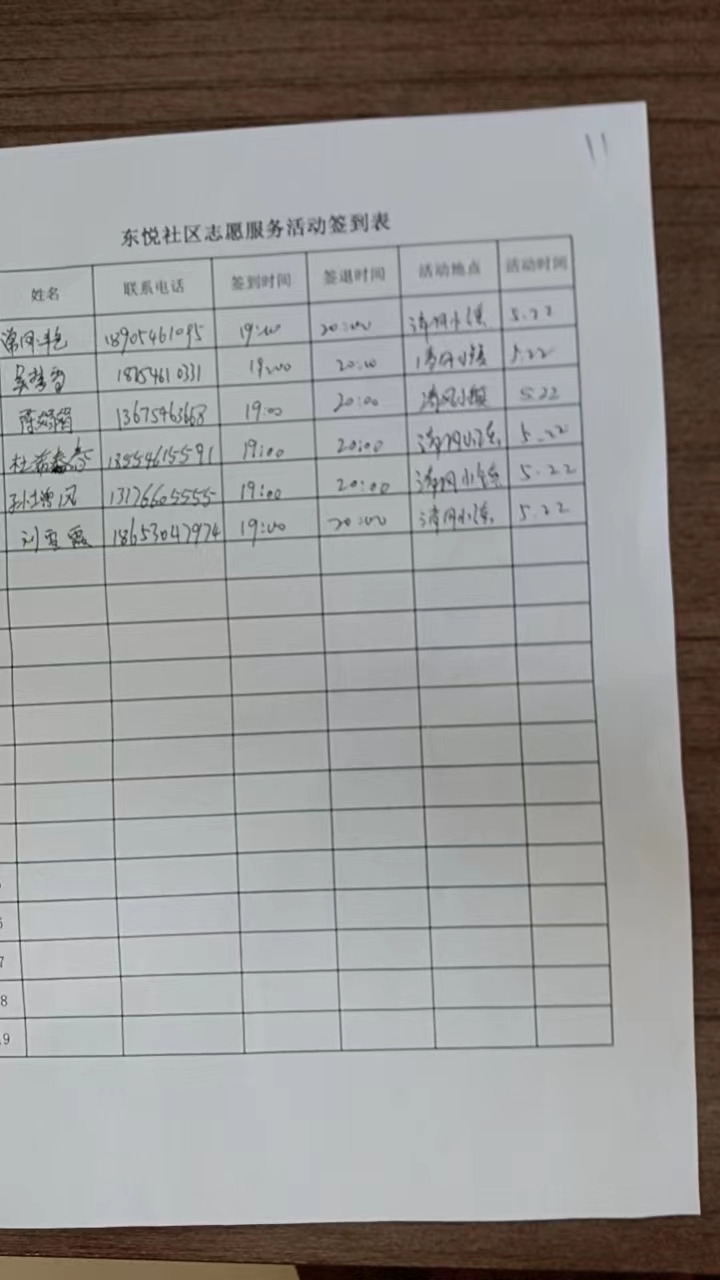 11
东悦社区志愿服务活动签到表
姓名 联系电话 签到时间 签退时间 活动地点 活动时间
18905461095 19:00 20:00 清风小镇 5.22
19:00 20:00 清风小镇 5.22
13675463668 19:00 20:00 清风小镇 5.22
杜 13554615591 19:00 20:00 清风小镇 5.22
孙 凤 13176605555 19:00 20:00 清风小镇 5.22
刘雪霞 18653047974 19:00 20:00 清风小镇 5.22
6
7
8
19